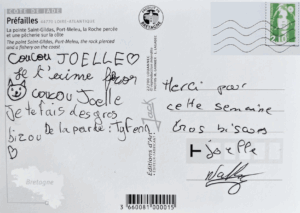 CÔTE DE JADE
Préfailles LOIRE-ATLANTIQUE
La pointe Saint-Gildas, Port-Meleu, la Roche percée
et une pêcherie sur la côte
The point Saint-Gildas, Port-Meleu, the rock pierced
and a fishery on the coast
COUCOU JOELLE
Je t'aime
COUCOU Joelle
Je te fais des gros
bizou De la part de : Tyfenn
Bretagne
Editions d'Art
Merci pour
cette semaine
gros bisous
Joelle
3 660081 000015